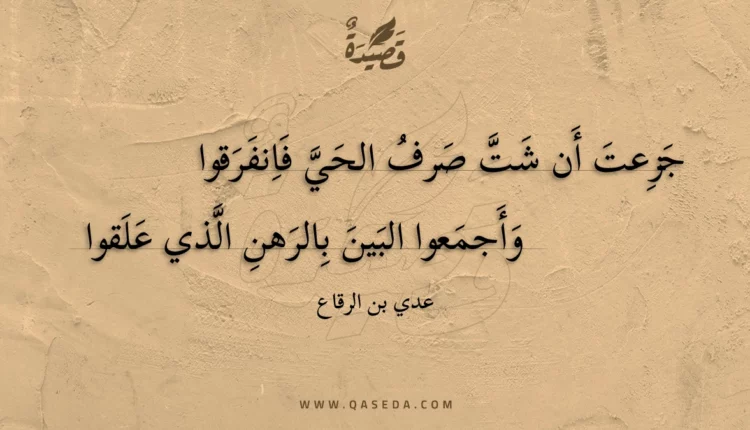 قَصِيْدَةٌ
جَزِعتَ أَن شَتَّ صَرفُ الحَيَّ فَاِنفَرَقوا
وَأَجمَعوا البَينَ بِالرَهنِ الَّذي عَلَقوا
عدي بن الرقاع
WWW.QASEDA.COM